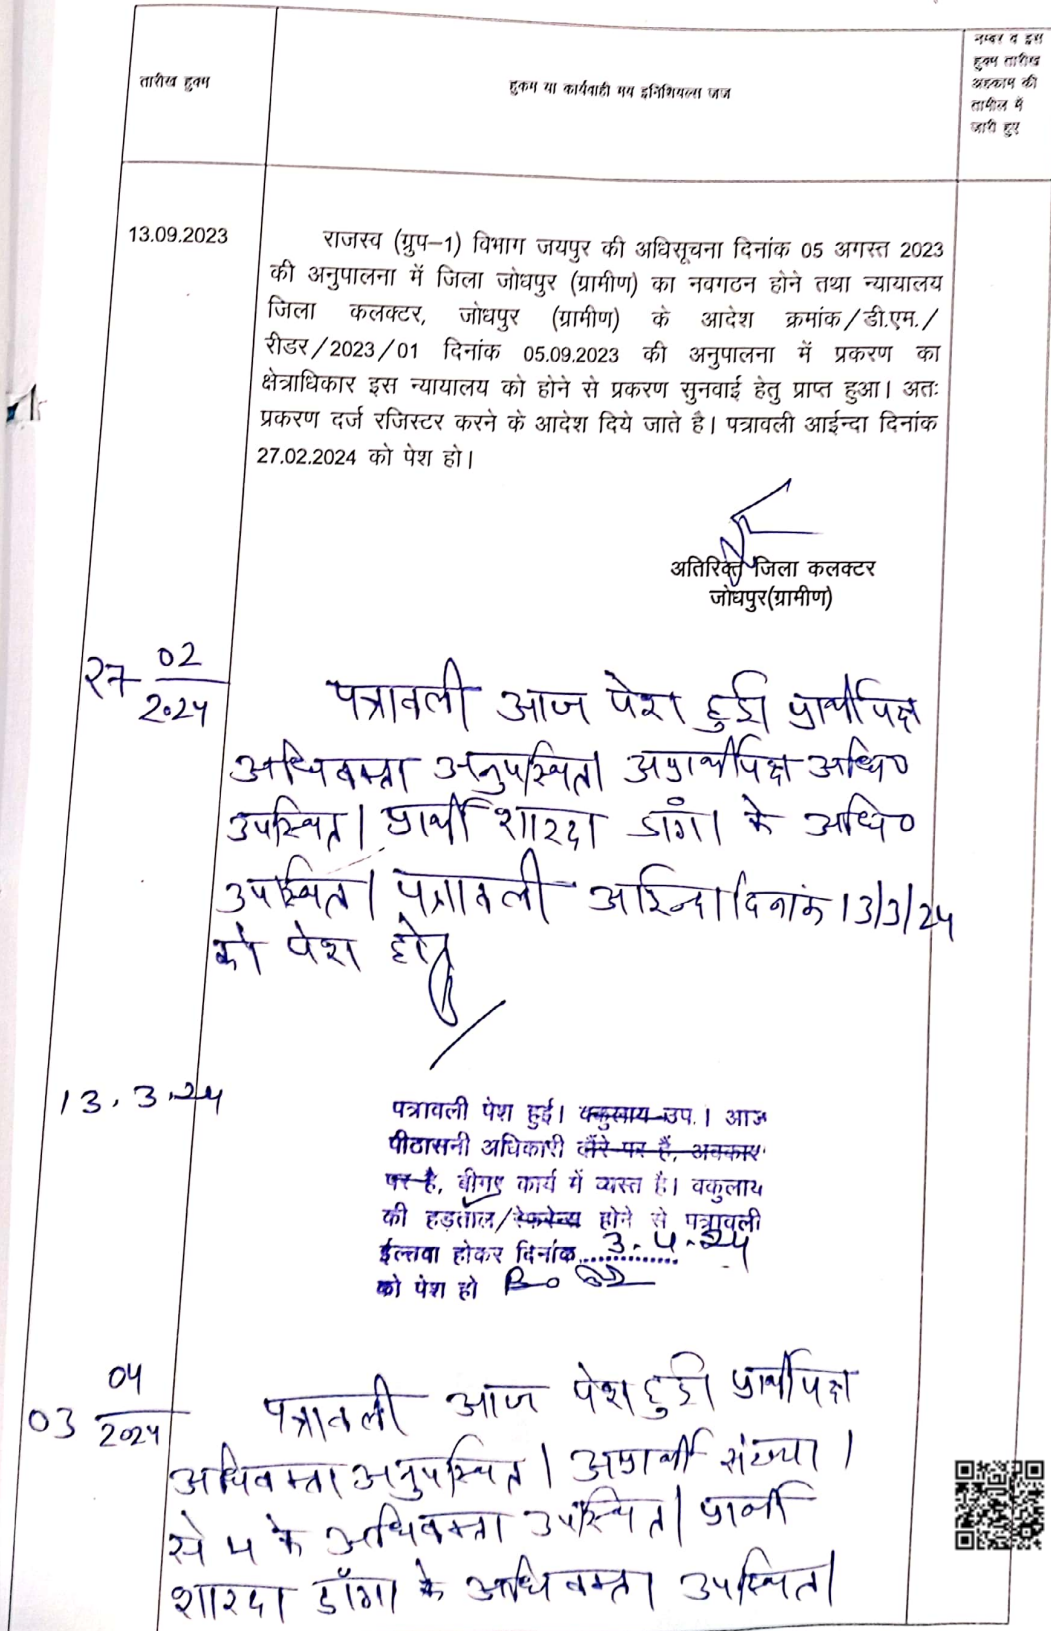 तारीख हुक्म
हुकम या कार्यवाही मय इनिशियल्स जज
नम्बर व इस
हुक्म तारीख
अहकाम की
तामील में
जारी हुए
13.09.2023
राजस्व (ग्रुप-1) विभाग जयपुर की अधिसूचना दिनांक 05 अगस्त 2023
की अनुपालना में जिला जोधपुर (ग्रामीण) का नवगठन होने तथा न्यायालय
जिला कलक्टर, जोधपुर (ग्रामीण) के आदेश क्रमांक/डी.एम./
रीडर/2023/01 दिनांक 05.09.2023 की अनुपालना में प्रकरण का
क्षेत्राधिकार इस न्यायालय को होने से प्रकरण सुनवाई हेतु प्राप्त हुआ। अतः
प्रकरण दर्ज रजिस्टर करने के आदेश दिये जाते है। पत्रावली आईन्दा दिनांक
27.02.2024 को पेश हो।
अतिरिक्त जिला कलक्टर
जोधपुर(ग्रामीण)
27 02/2024
पत्रावली आज पेश हुई प्रार्थीपक्ष
अधिवक्ता अनुपस्थित। अप्रार्थीपक्ष अधि०
उपस्थित। प्रार्थी शारदा डांगा के अधि०
उपस्थित। पत्रावली आईन्दा दिनांक 13/3/24
को पेश हो
13.3.24
पत्रावली पेश हुई। वकुलाय उप.। आज
पीठासनी अधिकारी दौरे पर हैं, अवकाश
पर है, बीगर कार्य में व्यस्त है। वकुलाय
की हड़ताल/रेफरेन्स होने से पत्रावली
ईल्तवा होकर दिनांक 3.4.24
को पेश हो
03 04/2024
पत्रावली आज पेश हुई प्रार्थीपक्ष
अधिवक्ता अनुपस्थित। अप्रार्थी संख्या 1
से 4 के अधिवक्ता उपस्थित। प्रार्थी
शारदा डाँगा के अधिवक्ता उपस्थित।